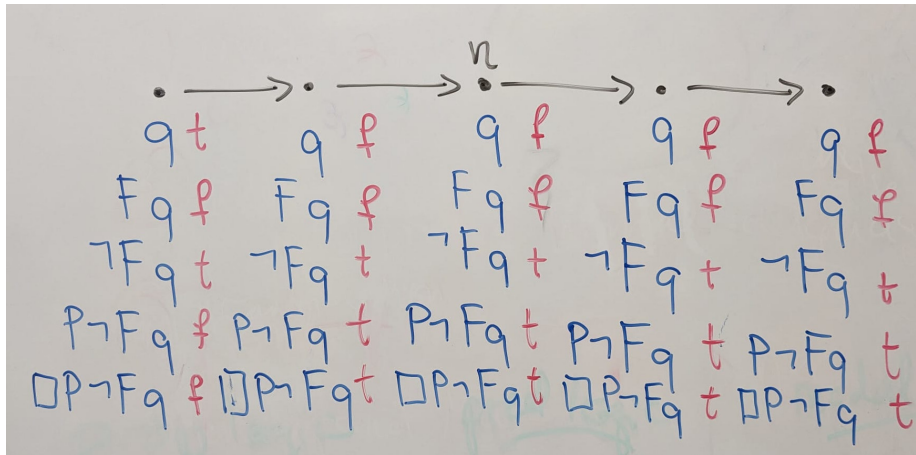 n
q t q f q f q f q f
Fq f Fq f Fq f Fq f Fq f
¬Fq t ¬Fq t ¬Fq t ¬Fq t ¬Fq t
P¬Fq f P¬Fq t P¬Fq t P¬Fq t P¬Fq t
□P¬Fq f □P¬Fq t □P¬Fq t □P¬Fq t □P¬Fq t